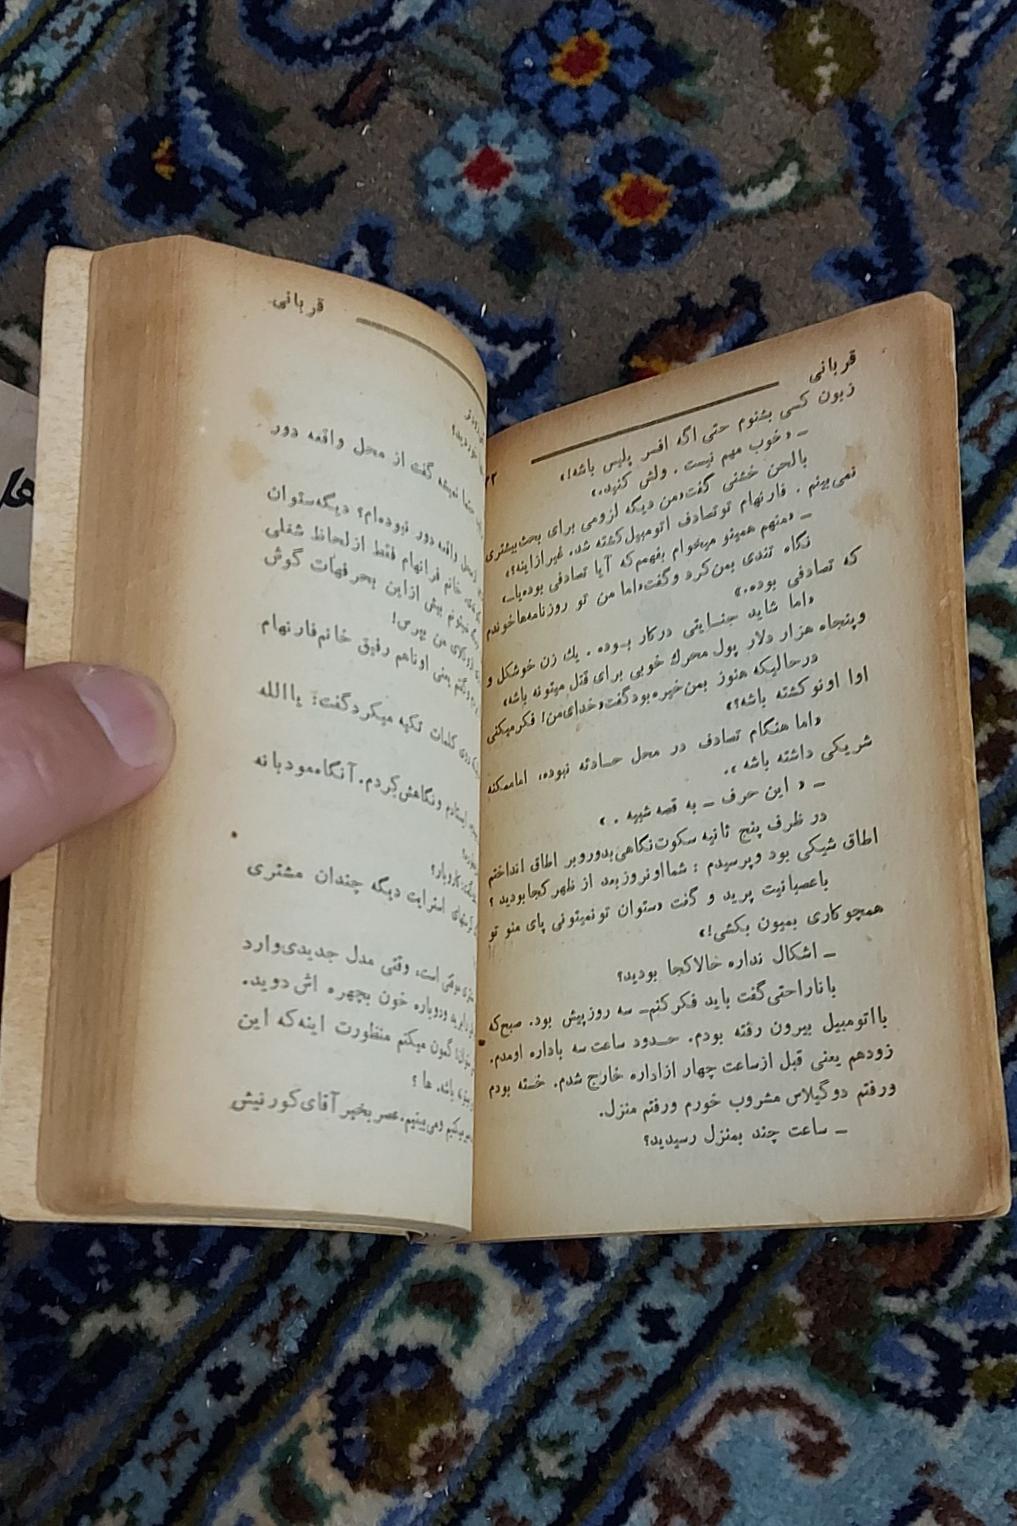 قربانی
زبون کسی بشنوم حتی اگه افسر پلیس باشه!»
ـ «خوب مهم نیست. ولش کنید.»
بالحن خشنی گفت«من دیگه لزومی برای بحث‌بیشتری
نمی‌بینم. فارنهام توتصادف اتومبیل‌کشته شد. غیرازاینه؟»
ـ «منهم همینو میخوام بفهم‌که آیا تصادفی بوده‌یا...»
نگاه تندی بمن‌کرد وگفت«اما من تو روزنامه‌هاخوندم
که تصادفی بوده.»
«اما شاید جنایتی درکار بوده. یك زن خوشکل و
وپنجاه هزار دلار پول محرك خوبی برای قتل میتونه باشه»
درحالیکه هنوز بمن‌خیره‌بودگفت«خدای‌من! فکرمیکنی
اوا اونوکشته باشه؟»
«اما هنگام تصادف در محل حادثه نبوده، اماممکنه
شریکی داشته باشه».
ـ « این حرف ـ به قصه شبیه . »
در ظرف پنج ثانیه سکوت‌نگاهی‌بدوروبر اطاق انداختم
اطاق شیکی بود وپرسیدم : شمااونروزبعد از ظهر کجابودید ؟
باعصبانیت پرید و گفت «ستوان تونمیتونی پای منو تو
همچوکاری بمیون بکشی!»
ـ اشکال نداره حالاکجا بودید؟
باناراحتی‌گفت باید فکرکنم‌ـ سه روزپیش بود. صبح‌که
بااتومبیل بیرون رفته بودم. حدود ساعت سه باداره اومدم.
زودهم یعنی قبل ازساعت چهار ازاداره خارج شدم. خسته بودم
ورفتم دوگیلاس مشروب خورم ورفتم منزل.
ـ ساعت چند بمنزل رسیدید؟
قربانی
نمیشه گفت از محل واقعه دور
واقعه دور نبوده‌ام؟ دیگه‌ستوان
خانم فرانهام فقط ازلحاظ شغلی
بیش ازاین بحرفهات گوش
من بپرس!
یعنی اوناهم رفیق خانم‌فارنهام
کلمات تکیه میکردگفت: یاالله
ایستادم ونگاهش‌کردم.آنگاه‌مودبانه
استرایت دیگه چندان مشتری
موقتی است، وقتی مدل جدیدی‌وارد
ودوباره خون بچهره اش دوید.
گمون میکنم منظورت اینه‌که این
باشد. ها ؟
ومی‌بینیم.عصربخیرآقای‌کورنیش